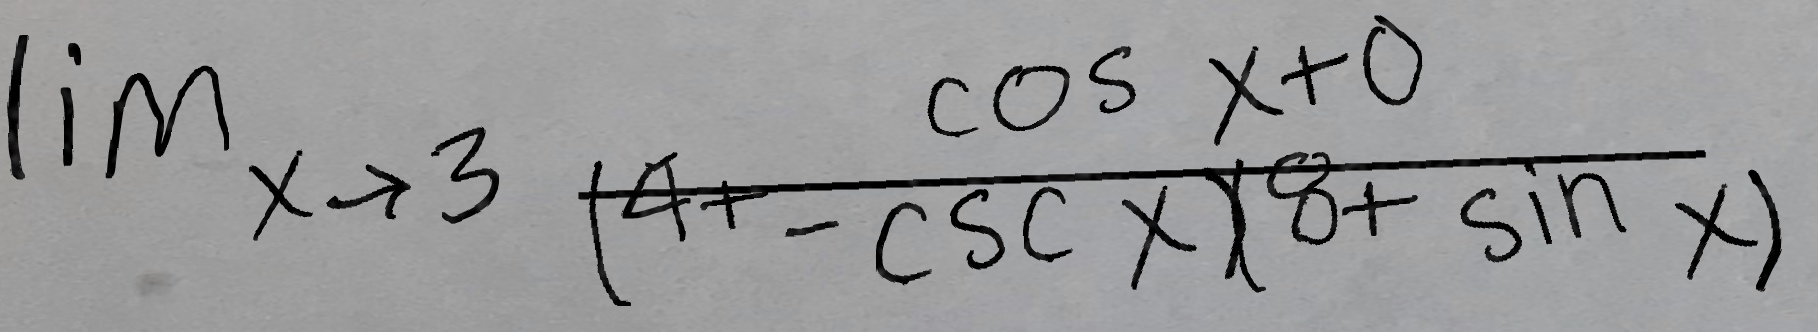 \lim_{x \to 3} \frac{\cos x + 0}{(4 + -\csc x)(8 + \sin x)}